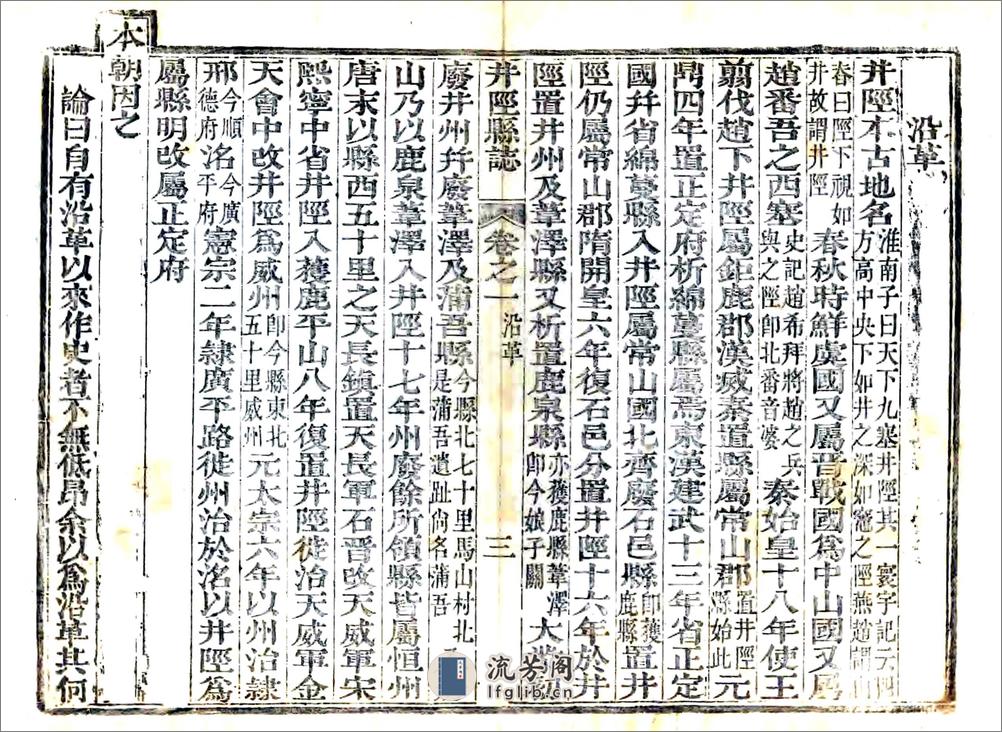 沿革
井陘本古地名淮南子曰天下九塞井陘其一寰宇記云四方高中央下如井之深如竈之陘燕趙謂山
春曰陘下視如井故謂井陘春秋時鮮虞國又屬晉戰國爲中山國又屬
趙番吾之西塞史記趙希拜將趙之兵與之陘即北番音婆秦始皇十八年使王
翦伐趙下井陘屬鉅鹿郡漢滅秦置縣屬常山郡置井陘縣始此元
鼎四年置正定府析綿蔓縣屬焉東漢建武十三年省正定
國幷省綿蔓縣入井陘屬常山國北齊廢石邑即獲鹿縣置井
陘仍屬常山郡隋開皇六年復石邑分置井陘十六年於井
陘置井州及葦澤縣又析置鹿泉縣亦獲鹿縣葦澤即今娘子關大業
井陘縣誌 卷之一 沿革 三
廢井州幷廢葦澤及蒲吾縣今縣北七十里馬山村北是蒲吾遺趾尚名蒲吾
山乃以鹿泉葦澤入井陘十七年州廢餘所領縣皆屬恒州
唐末以縣西五十里之天長鎮置天長軍石晉改天威軍宋
熙寧中省井陘入獲鹿平山八年復置井陘徙治天威軍金
天會中改井陘爲威州即今縣東北五十里威州元太宗六年以州治隸
邢今順德府洺今廣平府憲宗二年隸廣平路徙州治於洺以井陘爲
屬縣明改屬正定府
本朝因之
論曰自有沿革以來作史者不無低昂余以爲沿革其何
流芳阁
lfglib.cn